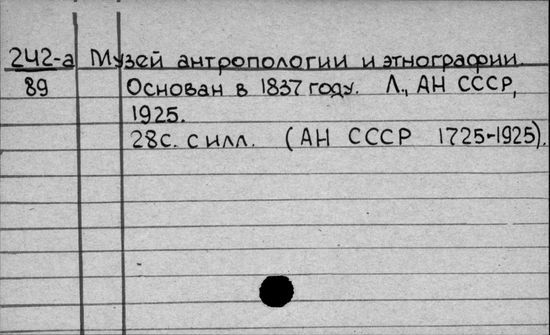 242-а Музей антропологии и этнографии.
89 Основан в 1837 году. Л., АН СССР,
1925.
28с. с илл. (АН СССР 1725-1925).